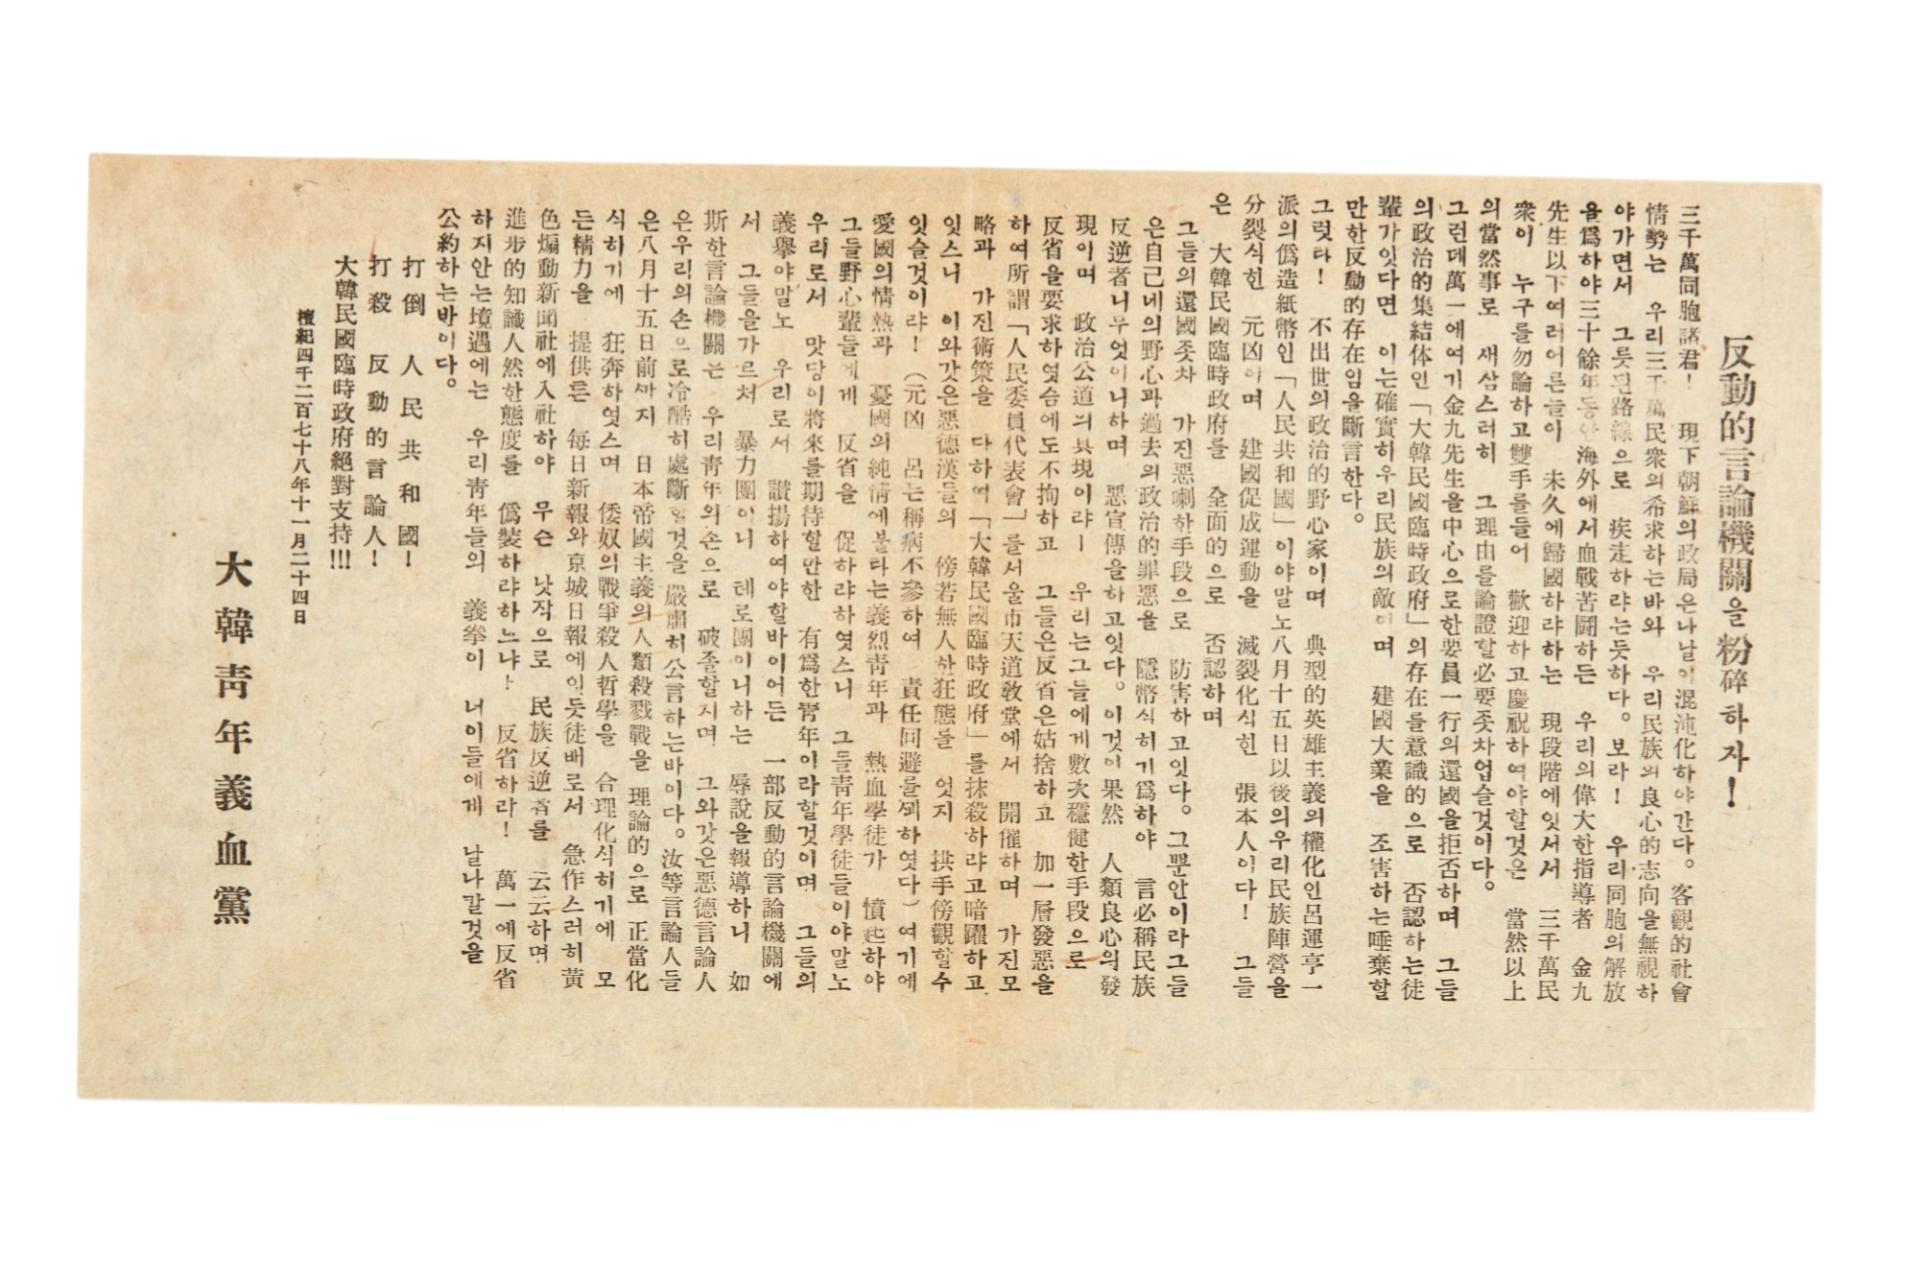 反動的言論機關을粉碎하자!
三千萬同胞諸君! 現下朝鮮의政局은나날이混沌化하야간다。客觀的社會
情勢는 우리三千萬民衆의希求하는바와 우리民族의良心的志向을無視하
야가면서 그릇된路線으로 疾走하랴는듯하다。보라! 우리同胞의解放
을爲하야三十餘年동안海外에서血戰苦闘하든 우리의偉大한指導者 金九
先生以下여러어른들이 未久에歸國하랴하는 現段階에잇서서 三千萬民
衆이 누구를勿論하고雙手를들어 歡迎하고慶祝하여야할것은 當然以上
의當然事로 새삼스러히 그理由를論證할必要좃차업슬것이다。
그런데萬一에여기金九先生을中心으로한要員一行의還國을拒否하며 그들
의政治的集結体인「大韓民國臨時政府」의存在를意識的으로 否認하는徒
輩가잇다면 이는確實히우리民族의敵이며 建國大業을 조害하는唾棄할
만한反動的存在임을斷言한다。
그럿다! 不出世의政治的野心家이며 典型的英雄主義의權化인呂運亨一
派의僞造紙幣인「人民共和國」이야말노八月十五日以後의우리民族陣營을
分裂식힌 元凶이며 建國促成運動을 滅裂化식힌 張本人이다! 그들
은 大韓民國臨時政府를 全面的으로 否認하며
그들의還國좃차 가진惡喇한手段으로 防害하고잇다。그뿐안이라그들
은自己네의野心과過去의政治的罪惡을 隱幣식히기爲하야 言必稱民族
反逆者니무엇이니하며 惡宣傳을하고잇다。이것이果然 人類良心의發
現이며 政治公道의具現이랴ー 우리는그들에게數次穩健한手段으로
反省을要求하엿슴에도不拘하고 그들은反省은姑捨하고 加一層發惡을
하여所謂「人民委員代表會」를서울市天道教堂에서 開催하며 가진모
略과 가진術策을 다하여「大韓民國臨時政府」를抹殺하랴고暗躍하고
잇스니 이와갓은惡德漢들의 傍若無人한狂態를 엇지 拱手傍觀할수
잇슬것이랴!(元凶 呂는稱病不參하여 責任回避를꾀하엿다)여기에
愛國의情熱과 憂國의純情에불타는義烈靑年과 熱血學徒가 憤起하야
그들野心輩들에게 反省을 促하랴하엿스니 그들靑年學徒들이야말노
우리로서 맛당이將來를期待할만한 有爲한靑年이라할것이며 그들의
義擧야말노 우리로서 讃揚하여야할바이어든 一部反動的言論機關에
서 그들을가르처 暴力團이니 테로團이니하는 辱說을報導하니 如
斯한言論機關는 우리靑年의손으로 破좀할지며 그와갓은惡德言論人
은우리의손으로冷酷히處斷할것을嚴肅히公言하는바이다。汝等言論人들
은八月十五日前까지 日本帝國主義의人類殺戮戰을 理論的으로 正當化
식히기에 狂奔하엿스며 倭奴의戰爭殺人哲學을 合理化식히기에 모
든精力을 提供튼 每日新報와京城日報에잇듯徒배로서 急作스러히黃
色煽動新聞社에入社하야 무슨 낫작으로 民族反逆者를 云云하면
進步的知識人然한態度를 僞裝하랴하느냐! 反省하라! 萬一에反省
하지안는境遇에는 우리靑年들의 義拳이 너이들에게 날나갈것을
公約하는바이다。
打倒 人民共和國!
打殺 反動的言論人!
大韓民國臨時政府絕對支持!!!
檀紀四千二百七十八年十一月二十四日
大韓靑年義血黨